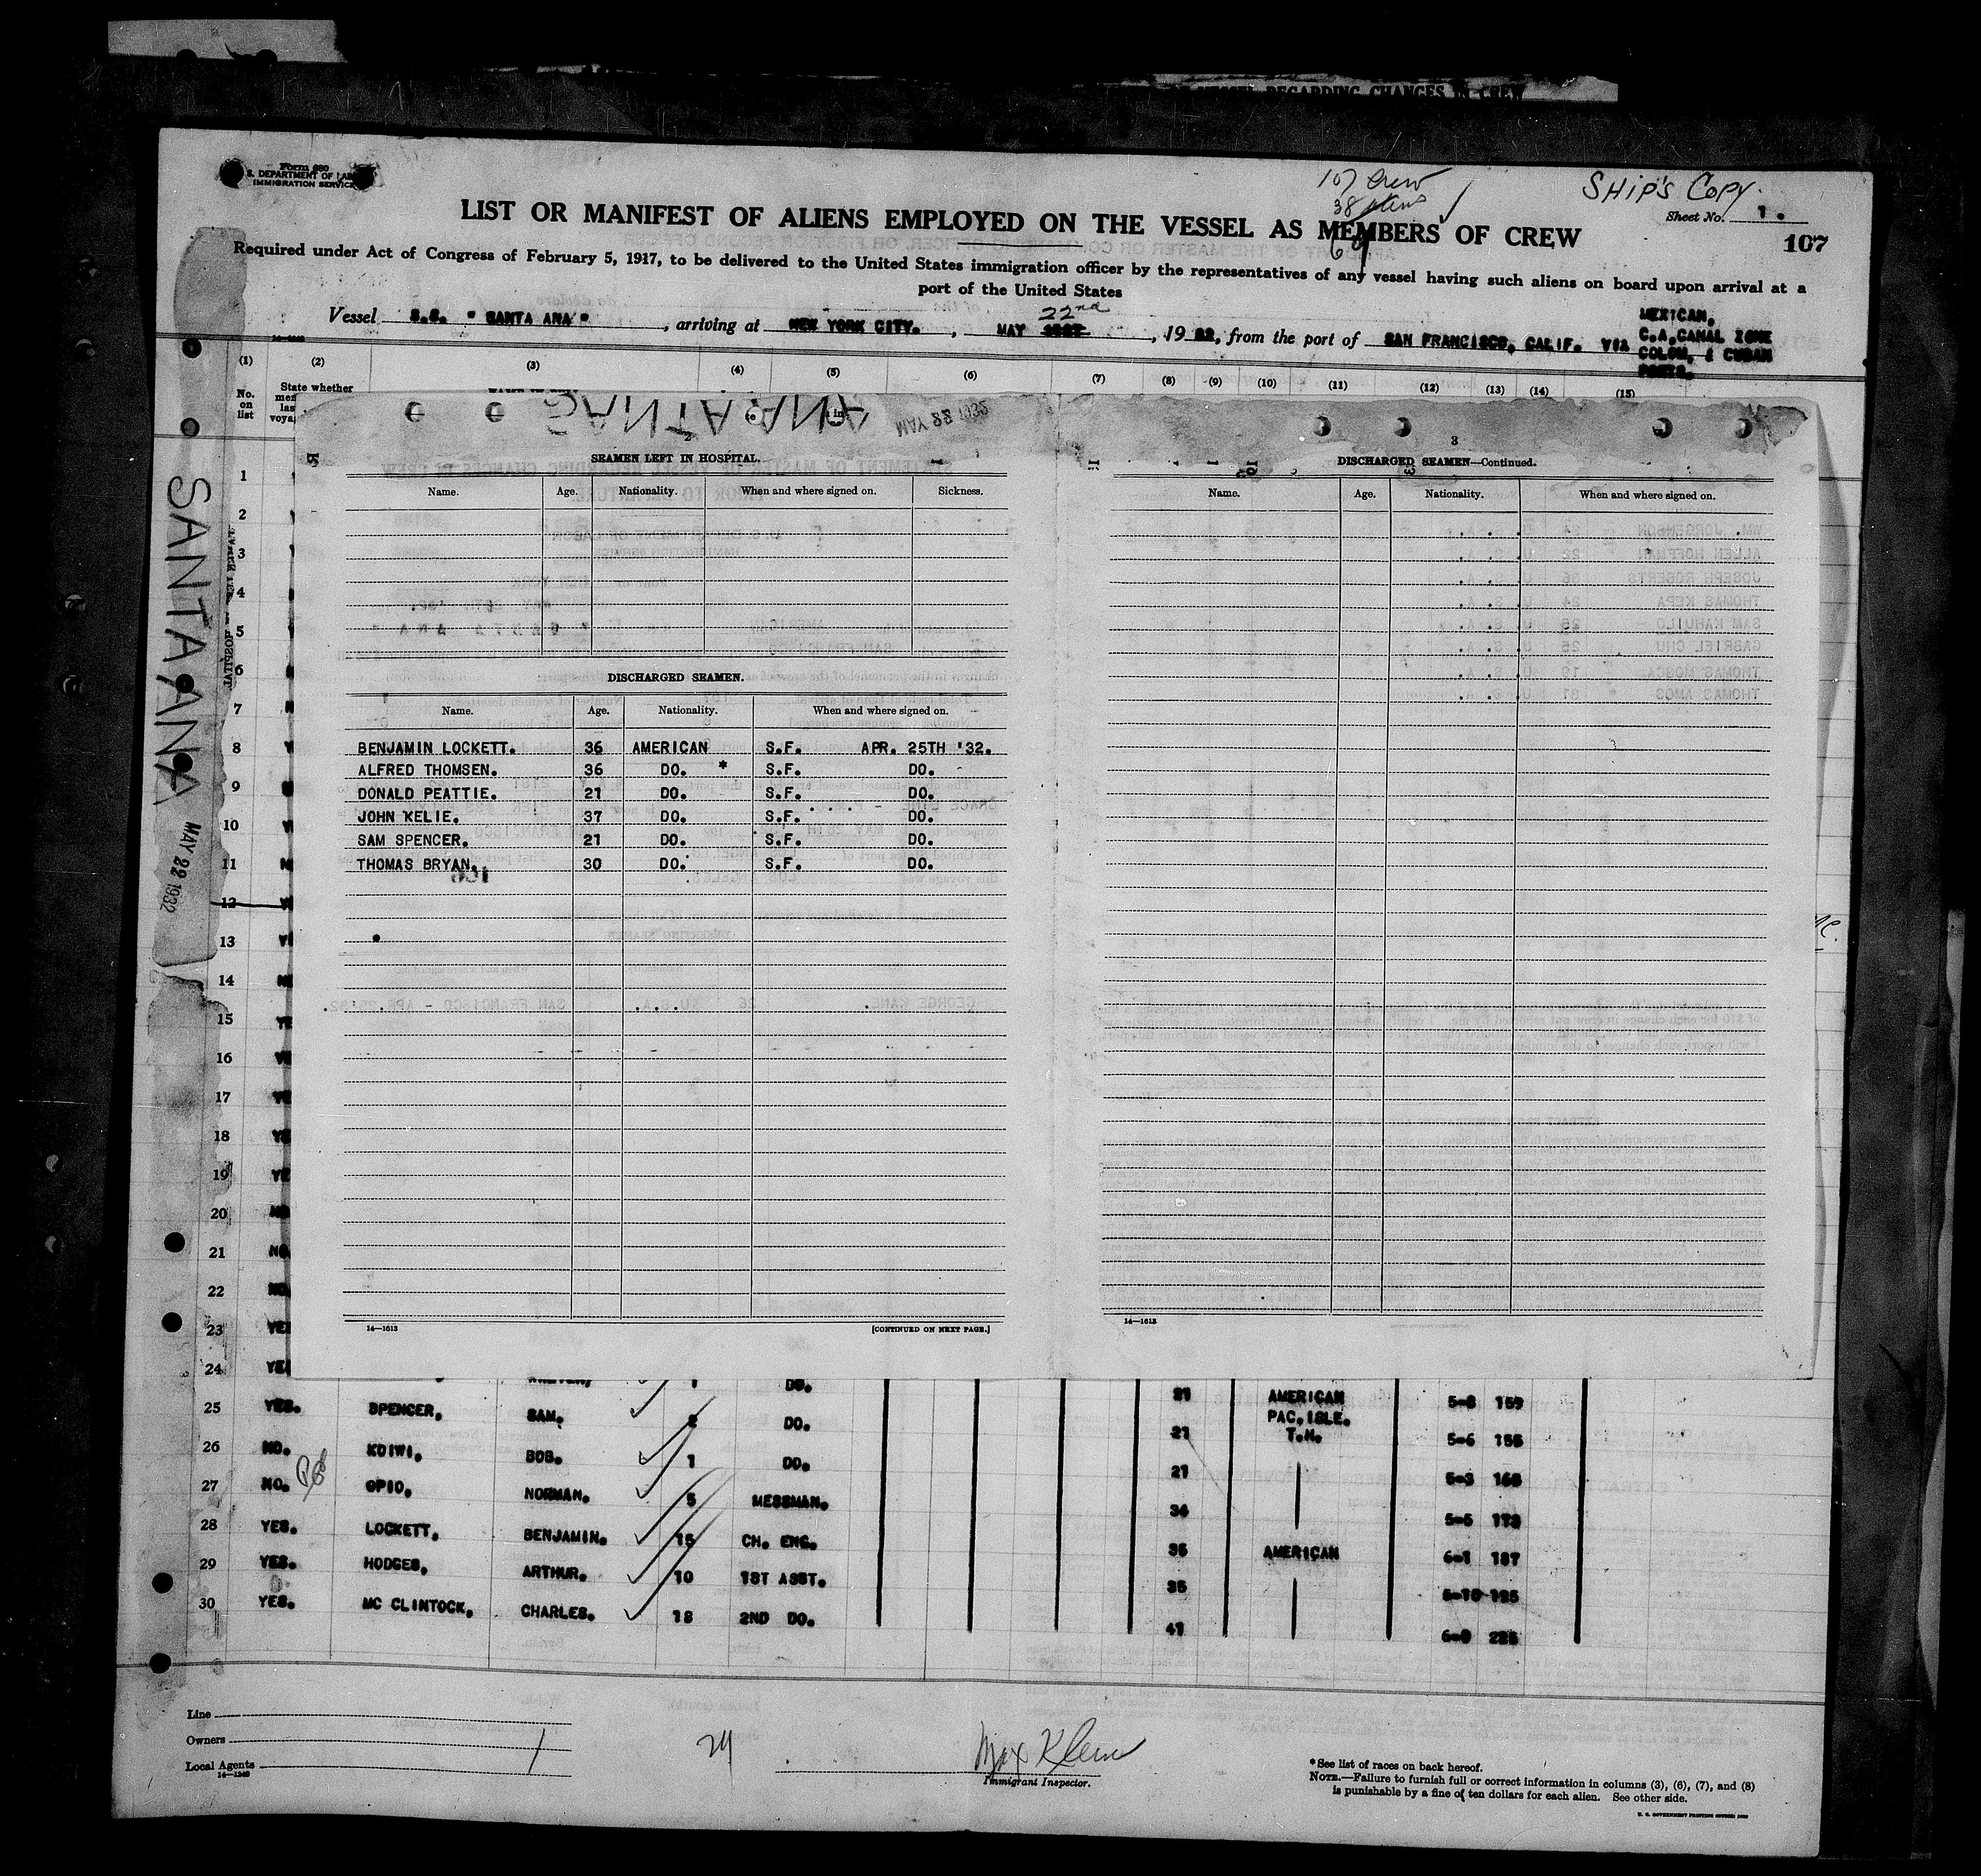 REGARDING CHANGES IN CREW
Form 680
U. S. DEPARTMENT OF LABOR
IMMIGRATION SERVICE
107 Crew
38 aliens
69
SHIP'S COPY.
Sheet No. 1.
107
LIST OR MANIFEST OF ALIENS EMPLOYED ON THE VESSEL AS MEMBERS OF CREW
Required under Act of Congress of February 5, 1917, to be delivered to the United States immigration officer by the representatives of any vessel having such aliens on board upon arrival at a
port of the United States
Vessel S.S. "SANTA ANA", arriving at NEW YORK CITY., MAY 22nd, 1932, from the port of SAN FRANCISCO, CALIF. VIA MEXICAN,
C.A,CANAL ZONE
COLOM, & CUBAN
PORTS.
(1) (2) (3) (4) (5) (6) (7) (8) (9) (10) (11) (12) (13) (14) (15)
No. on list
State whether
SANTA ANA
MAY 22 1932
SANTA ANA MAY 22 1932
2
SEAMEN LEFT IN HOSPITAL.
Name. Age. Nationality. When and where signed on. Sickness.
DISCHARGED SEAMEN.
Name. Age. Nationality. When and where signed on.
BENJAMIN LOCKETT. 36 AMERICAN S.F. APR. 25TH '32.
ALFRED THOMSEN. 36 DO. * S.F. DO.
DONALD PEATTIE. 21 DO. S.F. DO.
JOHN KELIE. 37 DO. S.F. DO.
SAM SPENCER. 21 DO. S.F. DO.
THOMAS BRYAN. 30 DO. S.F. DO.
14—1613 [CONTINUED ON NEXT PAGE.]
3
DISCHARGED SEAMEN—Continued.
Name. Age. Nationality. When and where signed on.
14—1613
1
2
3
4
5
6
7
8
9
10
11
12
13
14
15
16
17
18
19
20
21
22
23
24 DO. 21 AMERICAN 5-8 159
25 YES. SPENCER, SAM. 2 DO. 21 PAC.ISLE. T.H. 5-6 155
26 NO. KOIWI, BOB. 1 DO. 21 5-3 168
27 NO. OPIO, NORMAN. 5 MESSMAN. 34 5-5 173
28 YES. LOCKETT, BENJAMIN. 15 CH. ENG. 36 AMERICAN 6-1 187
29 YES. HODGES, ARTHUR. 10 1ST ASST. 35 5-10 195
30 YES. MC CLINTOCK, CHARLES. 18 2ND DO. 41 6-0 225
Line
Owners
Local Agents
14—1240
Max Klein
Immigrant Inspector.
*See list of races on back hereof.
NOTE.—Failure to furnish full or correct information in columns (3), (6), (7), and (8)
is punishable by a fine of ten dollars for each alien. See other side.